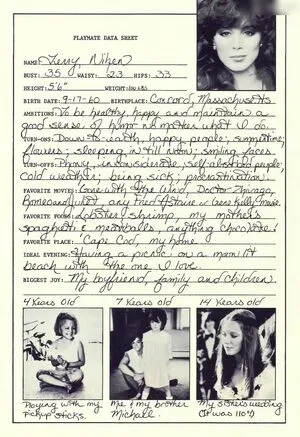 PLAYMATE DATA SHEET
NAME: Terry Nihen
BUST: 35 WAIST: 23 HIPS: 33
HEIGHT: 5'6" WEIGHT: 100 LBS
BIRTH DATE: 9-17-60 BIRTHPLACE: Concord, Massachusetts
AMBITIONS: To be healthy, happy and maintain a
good sense of humor no matter what I do.
TURN-ONS: Down-to-earth, happy people; summertime;
flowers; sleeping until noon; smiling faces.
TURN-OFFS: Phony, inconsiderate, self-absorbed people;
cold weather; being sick; procrastination.
FAVORITE MOVIES: Gone with the Wind, Doctor Zhivago,
Romeo and Juliet, any Fred Astaire or Gene Kelly movie.
FAVORITE FOODS: Lobster, shrimp, my mother's
spaghetti & meatballs, anything chocolate!
FAVORITE PLACE: Cape Cod, my home.
IDEAL EVENING: Having a picnic on a moonlit
beach with the one I love.
BIGGEST JOY: My boyfriend, family and children.
4 Years old 7 Years old 14 Years old
Playing with my
Pickup sticks.
Me & my brother
Michael.
My sister's wedding
(It was 110°)